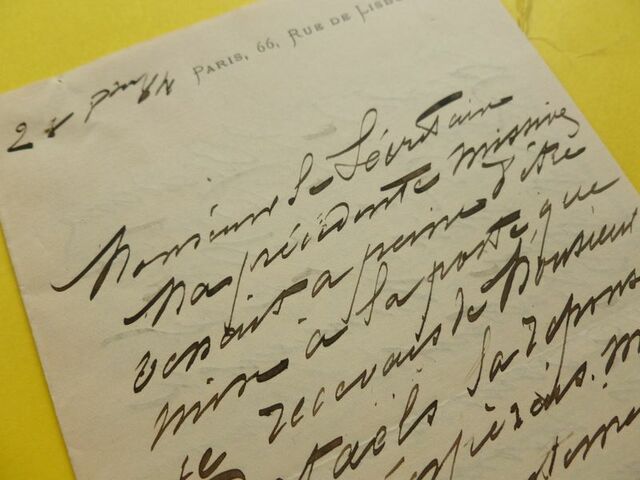 PARIS, 66, RUE DE LISBO
Monsieur le Secrétaire
Ma précédente missive
venait à peine d'être
mise à la poste, que
je recevais de Monsieur
sa répons
espérais. M